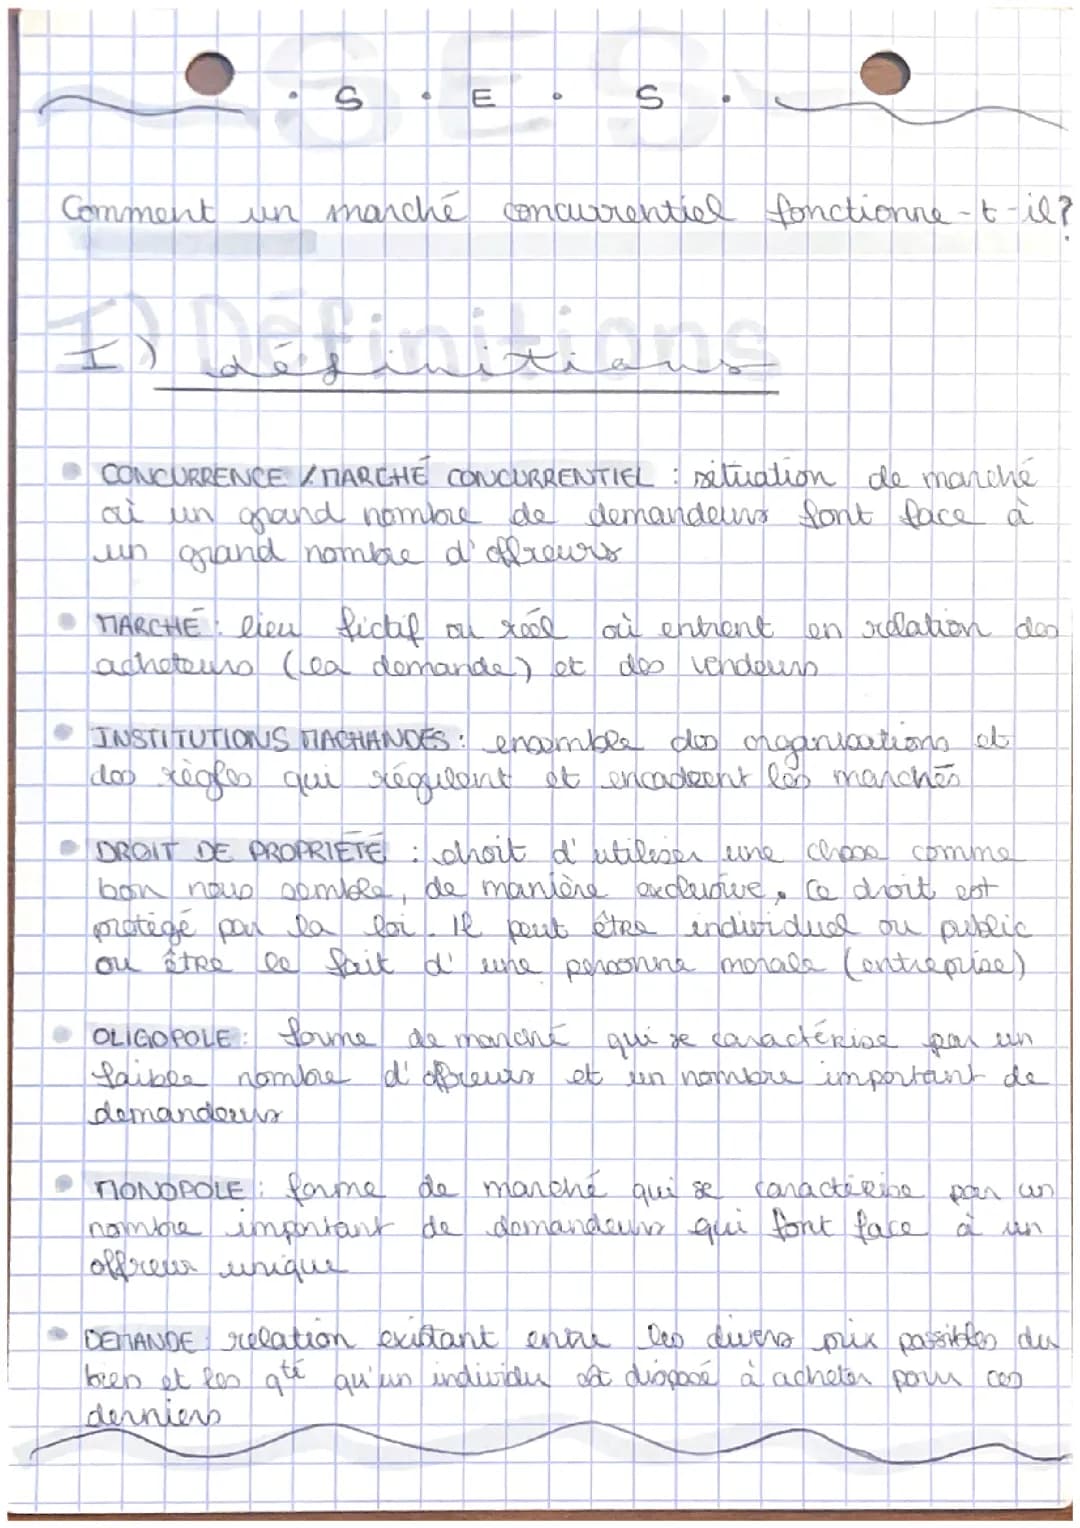 · S · E · S ·
Comment un marché concurrentiel fonctionne-t-il?
I) définitions
• CONCURRENCE / MARCHÉ CONCURRENTIEL : situation de marché
où un grand nombre de demandeurs font face à
un grand nombre d'offreurs
• MARCHÉ : lieu fictif ou réél où entrent en relation des
acheteurs (la demande) et des vendeurs
• INSTITUTIONS MACHANDES : ensemble des organisations et
des règles qui régulent et encadrent les marchés
• DROIT DE PROPRIÉTÉ : droit d'utiliser une chose comme
bon nous semble, de manière exclusive, ce droit est
protégé par la loi. Il peut être individuel ou public
ou être le fait d'une personne morale (entreprise)
• OLIGOPOLE : forme de marché qui se caractérise par un
faible nombre d'offreurs et un nombre important de
demandeurs
• MONOPOLE : forme de marché qui se caractérise par un
nombre important de demandeurs qui font face à un
offreur unique
• DEMANDE : relation existant entre les divers prix possibles du
bien et les qté qu'un individu est disposé à acheter pour ces
derniers